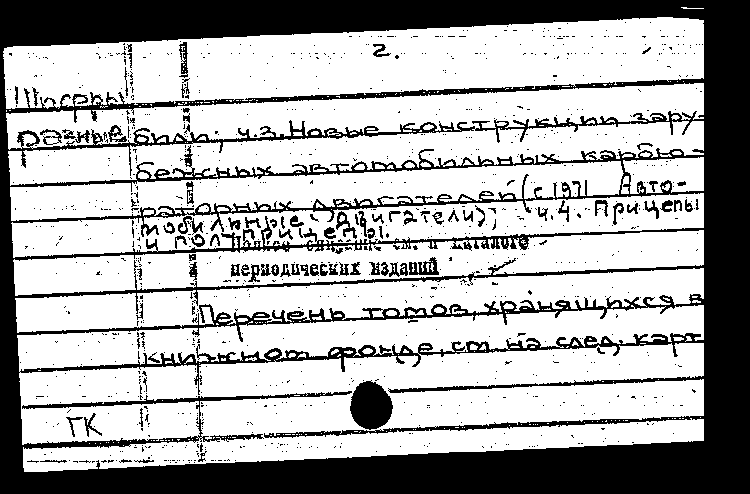 2.
Шифры
разные били; ч.3. Новые конструкции зару-
бежных автомобильных карбю-
раторных двигателей (с 1971 Авто-
мобильные двигатели); ч.4. Прицепы
и полуприцепы.
Полное описание см. в каталоге
периодических изданий
Перечень томов, хранящихся в
книжном фонде, см. на след. карт
ГК